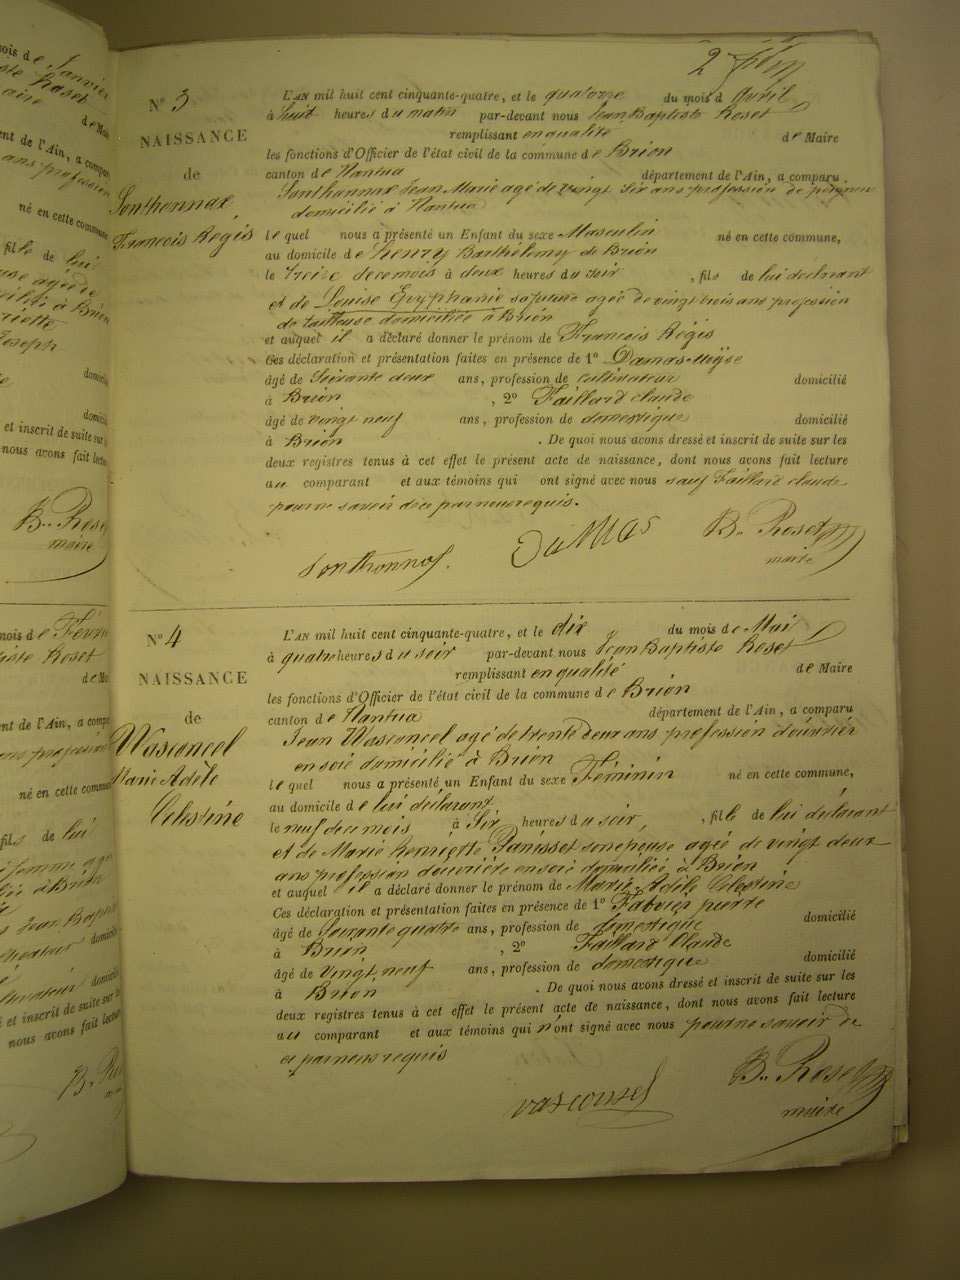 mois de Janvier
iste Roset
aire
de Mai
ent de l'Ain, a compa
ans profession
né en cette commune
fille de lui
Joseph
domicilié
domicilié
et inscrit de suite sur
nous avons fait lecture
B. Roset
maire
mois de Févrie
iste Roset
de Mai
ent de l'Ain, a compa
né en cette commune
fils de lui
Jean Bapt
domicilié
domicilié
et inscrit de suite sur
nous avons fait lecture
2
N° 3
NAISSANCE
de
Sonthonnax
François Régis
L'AN mil huit cent cinquante-quatre, et le quatorze du mois d Avril
à huit heures du matin par-devant nous Jean Baptiste Roset
remplissant en qualité de Maire
les fonctions d'Officier de l'état civil de la commune de Brion
canton de Nantua département de l'Ain, a comparu
Sonthonnax Jean Marie agé de vingt six ans profession de
domicilié à Nantua
lequel nous a présenté un Enfant du sexe Masculin né en cette commune,
au domicile de henry Barthélemy de Brion
le treize de ce mois à deux heures du soir , fils de lui déclarant
et de Louise Epyphanie sa future agée de vingt trois ans profession
de tailleuse domiciliée à Brion
et auquel il a déclaré donner le prénom de François Régis
Ces déclaration et présentation faites en présence de 1° Damas
âgé de Soixante deux ans, profession de cultivateur domicilié
à Brion , 2° Faillard claude
âgé de vingt neuf ans, profession de domestique domicilié
à Brion . De quoi nous avons dressé et inscrit de suite sur les
deux registres tenus à cet effet le présent acte de naissance, dont nous avons fait lecture
au comparant et aux témoins qui ont signé avec nous sauf Faillard claude
pour ne savoir de ce par nous requis.
Sonthonnax.
DaMas
B. Roset
maire
N° 4
NAISSANCE
de
Wasconcel
Marie Adèle
Célestine
L'AN mil huit cent cinquante-quatre, et le dix du mois de Mai
à quatre heures du soir par-devant nous Jean Baptiste Roset
remplissant en qualité de Maire
les fonctions d'Officier de l'état civil de la commune de Brion
canton de Nantua département de l'Ain, a comparu
Jean Wasconcel agé de trente deux ans profession d'ouvrier
en soie domicilié à Brion
lequel nous a présenté un Enfant du sexe Féminin né en cette commune,
au domicile de lui déclarant
le neuf de ce mois à Six heures du soir, , fille de lui déclarant
et de Marie henriette Panisset son épouse agée de vingt deux
ans profession d'ouvrière en soie domiciliée à Brion
et auquel il a déclaré donner le prénom de Marie Adèle Célestine
Ces déclaration et présentation faites en présence de 1° Fabvier pierre
âgé de Soixante quatre ans, profession de domestique domicilié
à Brion , 2° Faillard Claude
âgé de Vingt neuf ans, profession de domestique domicilié
à Brion . De quoi nous avons dressé et inscrit de suite sur les
deux registres tenus à cet effet le présent acte de naissance, dont nous avons fait lecture
au comparant et aux témoins qui n'ont signé avec nous pour ne savoir de
ce par nous requis
vasconsel
B. Roset
maire